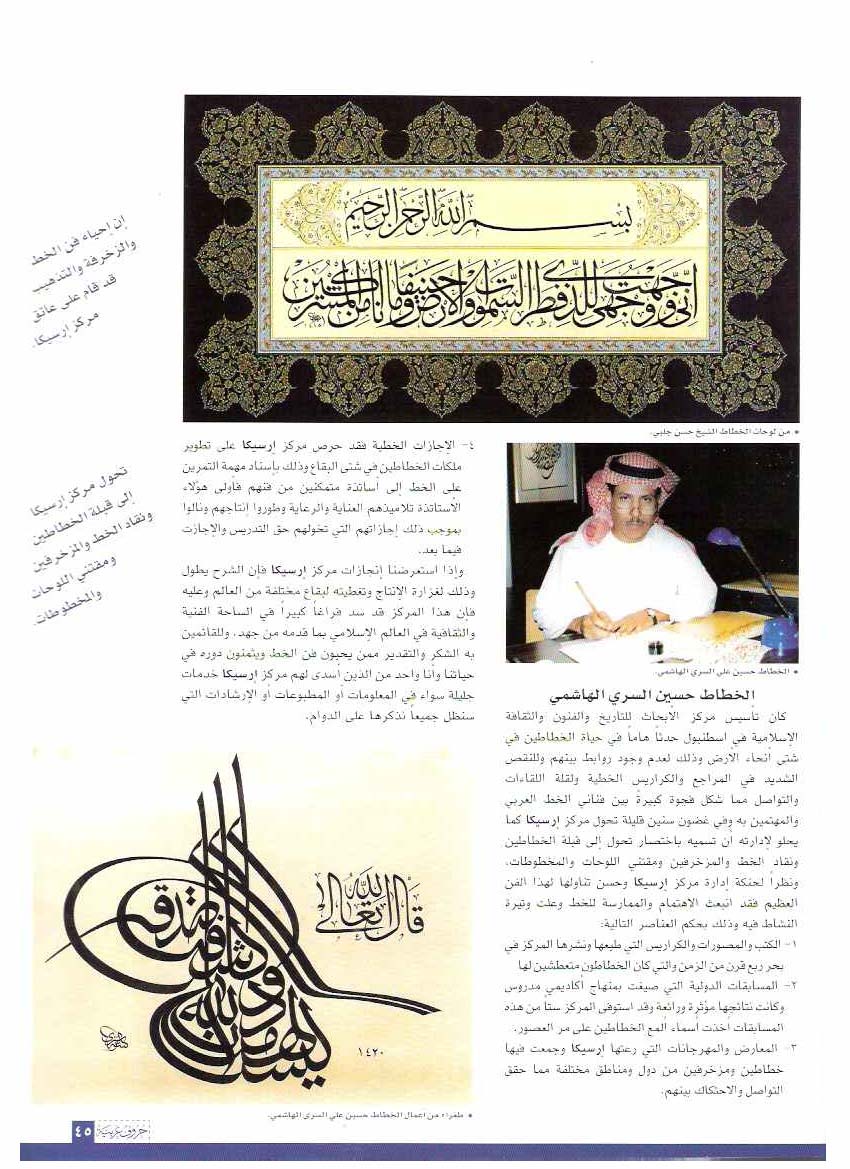 بسم الله الرحمن الرحيم
إني وجهت وجهي للذي فطر السموات والأرض حنيفا وما أنا من المشركين
* من لوحات الخطاط الشيخ حسن جلبي.
إن إحياء فن الخط
والزخرفة والتذهيب
قد قام على عاتق
مركز إرسيكا.
تحول مركز إرسيكا
إلى قبلة الخطاطين
ونقاد الخط والمزخرفين
ومقتني اللوحات
والمخطوطات.
* الخطاط حسين علي السري الهاشمي.
الخطاط حسين السري الهاشمي
كان تأسيس مركز الأبحاث للتأريخ والفنون والثقافة
الإسلامية في اسطنبول حدثاً هاماً في حياة الخطاطين في
شتى أنحاء الأرض وذلك لعدم وجود روابط بينهم وللنقص
الشديد في المراجع والكراريس الخطية ولقلة اللقاءات
والتواصل مما شكل فجوة كبيرة بين فناني الخط العربي
والمهتمين به وفي غضون سنين قليلة تحول مركز إرسيكا كما
يحلو لإدارته أن تسميه باختصار تحول إلى قبلة الخطاطين
ونقاد الخط والمزخرفين ومقتني اللوحات والمخطوطات،
ونظراً لحنكة إدارة مركز إرسيكا وحسن تناولها لهذا الفن
العظيم فقد انبعث الاهتمام والممارسة للخط وعلت وتيرة
النشاط فيه وذلك بحكم العناصر التالية:
١- الكتب والمصورات والكراريس التي طبعها ونشرها المركز في
بحر ربع قرن من الزمن والتي كان الخطاطون متعطشين لها
٢- المسابقات الدولية التي صيغت بمنهاج أكاديمي مدروس
وكانت نتائجها مؤثرة ورائعة وقد استوفى المركز ستاً من هذه
المسابقات اخذت أسماء ألمع الخطاطين على مر العصور.
٣- المعارض والمهرجانات التي رعتها إرسيكا وجمعت فيها
خطاطين ومزخرفين من دول ومناطق مختلفة مما حقق
التواصل والاحتكاك بينهم.
٤- الإجازات الخطية فقد حرص مركز إرسيكا على تطوير
ملكات الخطاطين في شتى البقاع وذلك بإسناد مهمة التمرين
على الخط إلى أساتذة متمكنين من فنهم فأولى هؤلاء
الأستاتذة تلاميذهم العناية والرعاية وطوروا إنتاجهم ونالوا
بموجب ذلك إجازاتهم التي تخولهم حق التدريس والإجازت
فيما بعد.
وإذا استعرضنا إنجازات مركز إرسيكا فإن الشرح يطول
وذلك لغزارة الانتاج وتغطيته لبقاع مختلفة من العالم وعليه
فإن هذا المركز قد سد فراغاً كبيراً في الساحة الفنية
والثقافية في العالم الإسلامي بما قدمه من جهد، وللقائمين
به الشكر والتقدير ممن يحبون فن الخط ويثمنون دوره في
حياتنا وأنا واحد من الذين أسدى لهم مركز إرسيكا خدمات
جليلة سواء في المعلومات أو المطبوعات أو الإرشادات التي
سنظل جميعاً نذكرها على الدوام.
قال الله تعالى
١٤٢٠
* طغراء من اعمال الخطاط حسين علي السري الهاشمي.
حروف عربية
٤٥